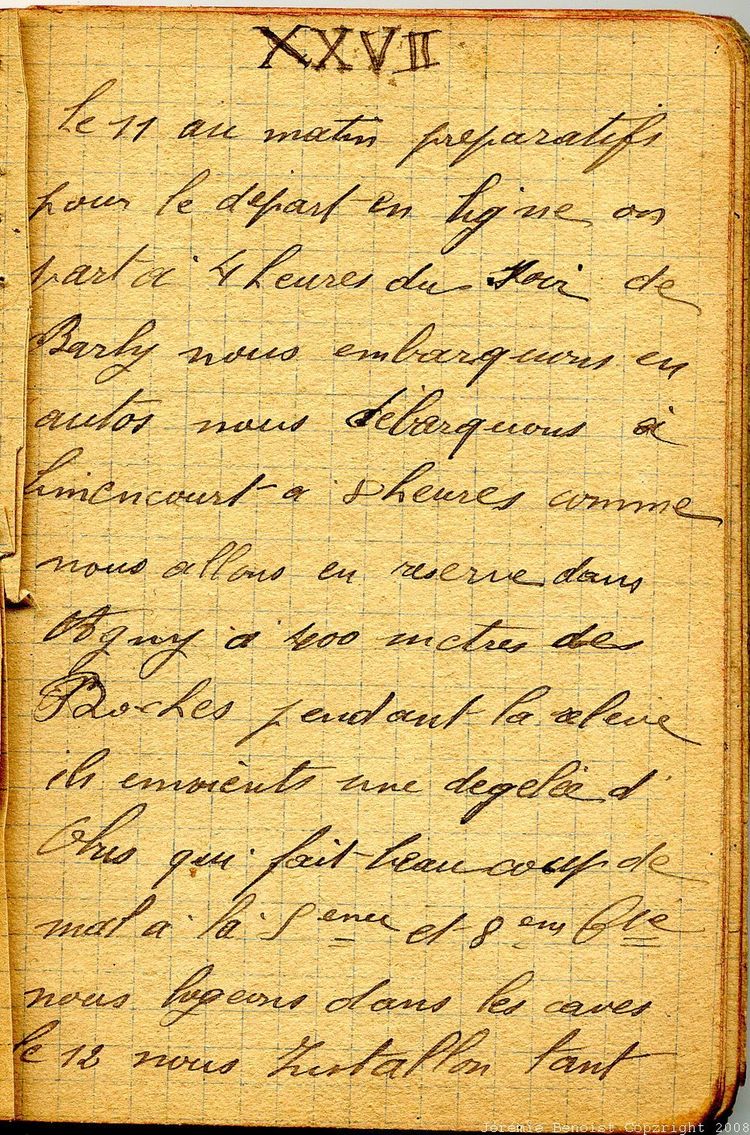 XXVII
le 11 au matin preparatifs
pour le départ en ligne on
part à 4 heures du soir de
Barly nous embarquons en
autos nous débarquons à
Simencourt a 8 heures comme
nous allons en reserve dans
Agny à 400 metres des
Boches pendant la releve
ils envoients une degelée d'
Obus qui fait beaucoup de
mal à la 5 eme et 8 em Cie
nous logeons dans les caves
le 12 nous Installon tant
Jeremie Benoist Copzright 2008